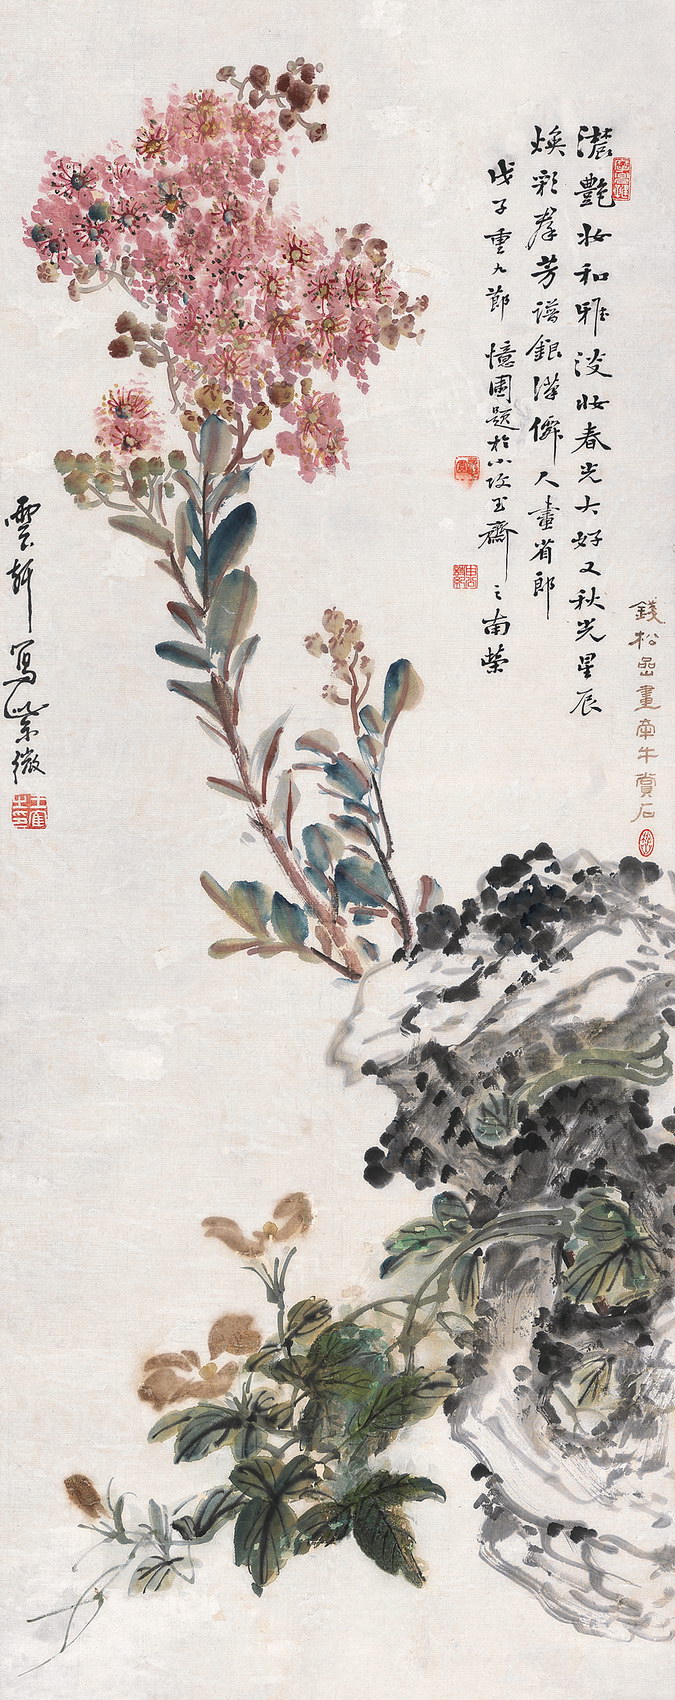 濃艷妝和雅淡妝春光大好又秋光星辰
煥彩羣芳譜銀漢僊人畫省郎
戊子重九節憶園題於小玲玉齋之南榮
錢松嵒畫牽牛賞石
雲軒寫紫微